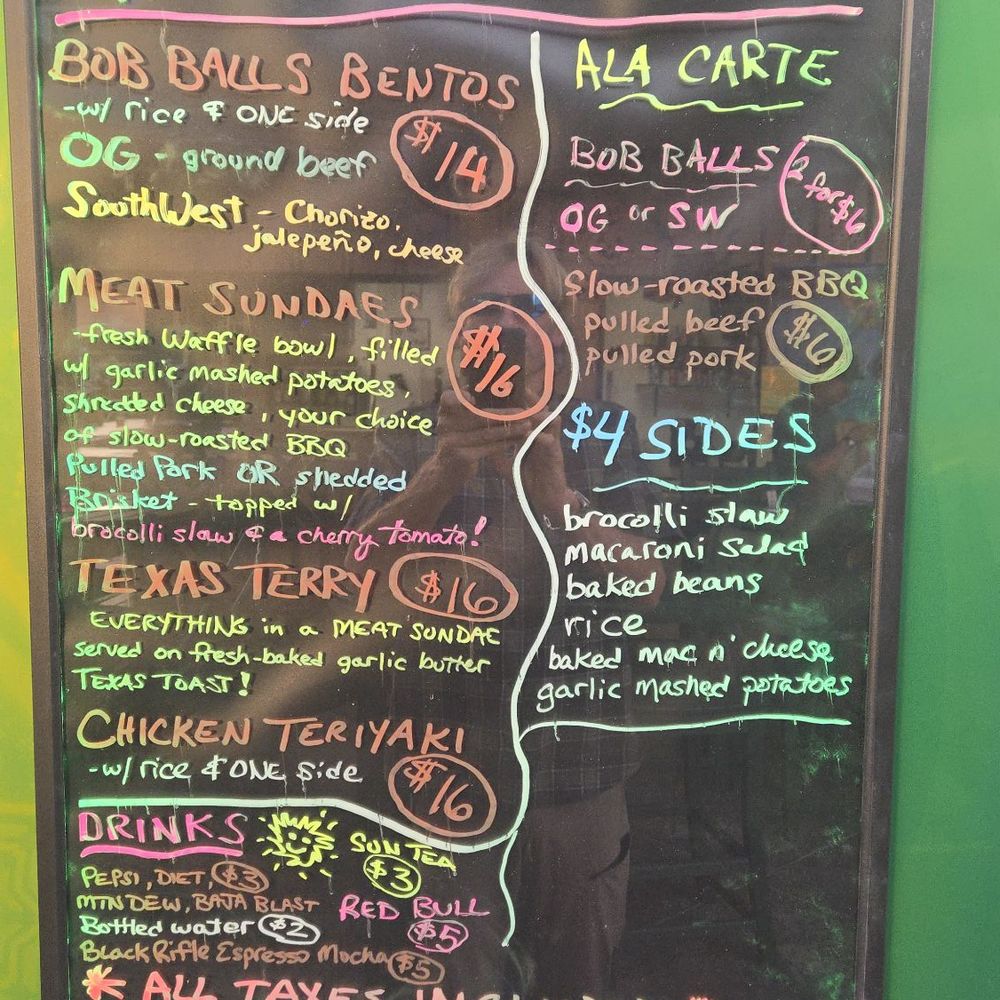 BOB BALLS BENTOS
-w/ rice & ONE side
$14
OG - ground beef
SouthWest - Chorizo,
jalepeño, cheese
MEAT SUNDAES
-fresh Waffle bowl, filled
$16
w/ garlic mashed potatoes,
shredded cheese, your choice
of slow-roasted BBQ
Pulled Pork OR shedded
Brisket - topped w/
brocolli slaw & a cherry tomato!
TEXAS TERRY $16
EVERYTHING in a MEAT SUNDAE
served on fresh-baked garlic butter
TEXAS TOAST!
CHICKEN TERIYAKI
-w/ rice & ONE side
$16
DRINKS
SUN TEA
$3
PEPSI, DIET, $3
MTN DEW, BAJA BLAST
RED BULL
$5
Bottled water $2
Black Rifle Espresso Mocha $5
* ALL TAXES
ALA CARTE
BOB BALLS 2 for $6
OG or SW
Slow-roasted BBQ
pulled beef
$6
pulled pork
$4 SIDES
brocolli slaw
macaroni Salad
baked beans
rice
baked mac n' cheese
garlic mashed potatoes